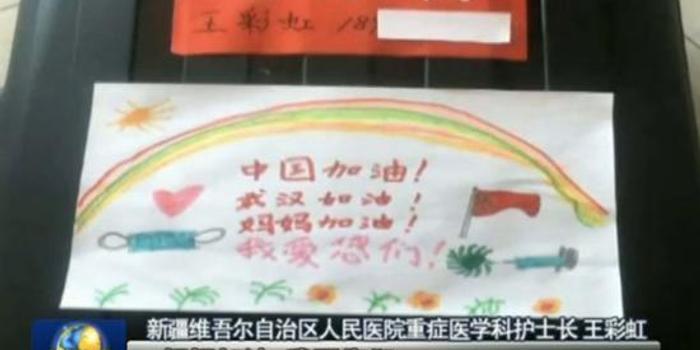 王彩虹 189
中国加油!
武汉加油!
妈妈加油!
我爱您们!
新疆维吾尔自治区人民医院重症医学科护士长 王彩虹